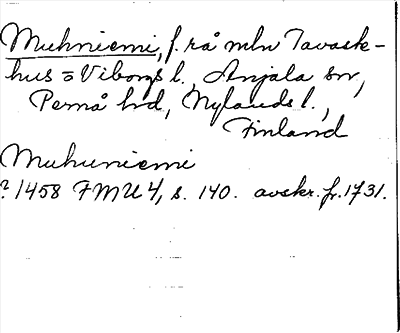 Muhniemi, f. rå mln Tavast-
hus o Viborgs l., Anjala sn,
Pernå hd, Nylands l.,
Finland
Muhuniemi
? 1458 FMU 4, s. 140. avskr. fr. 1731.